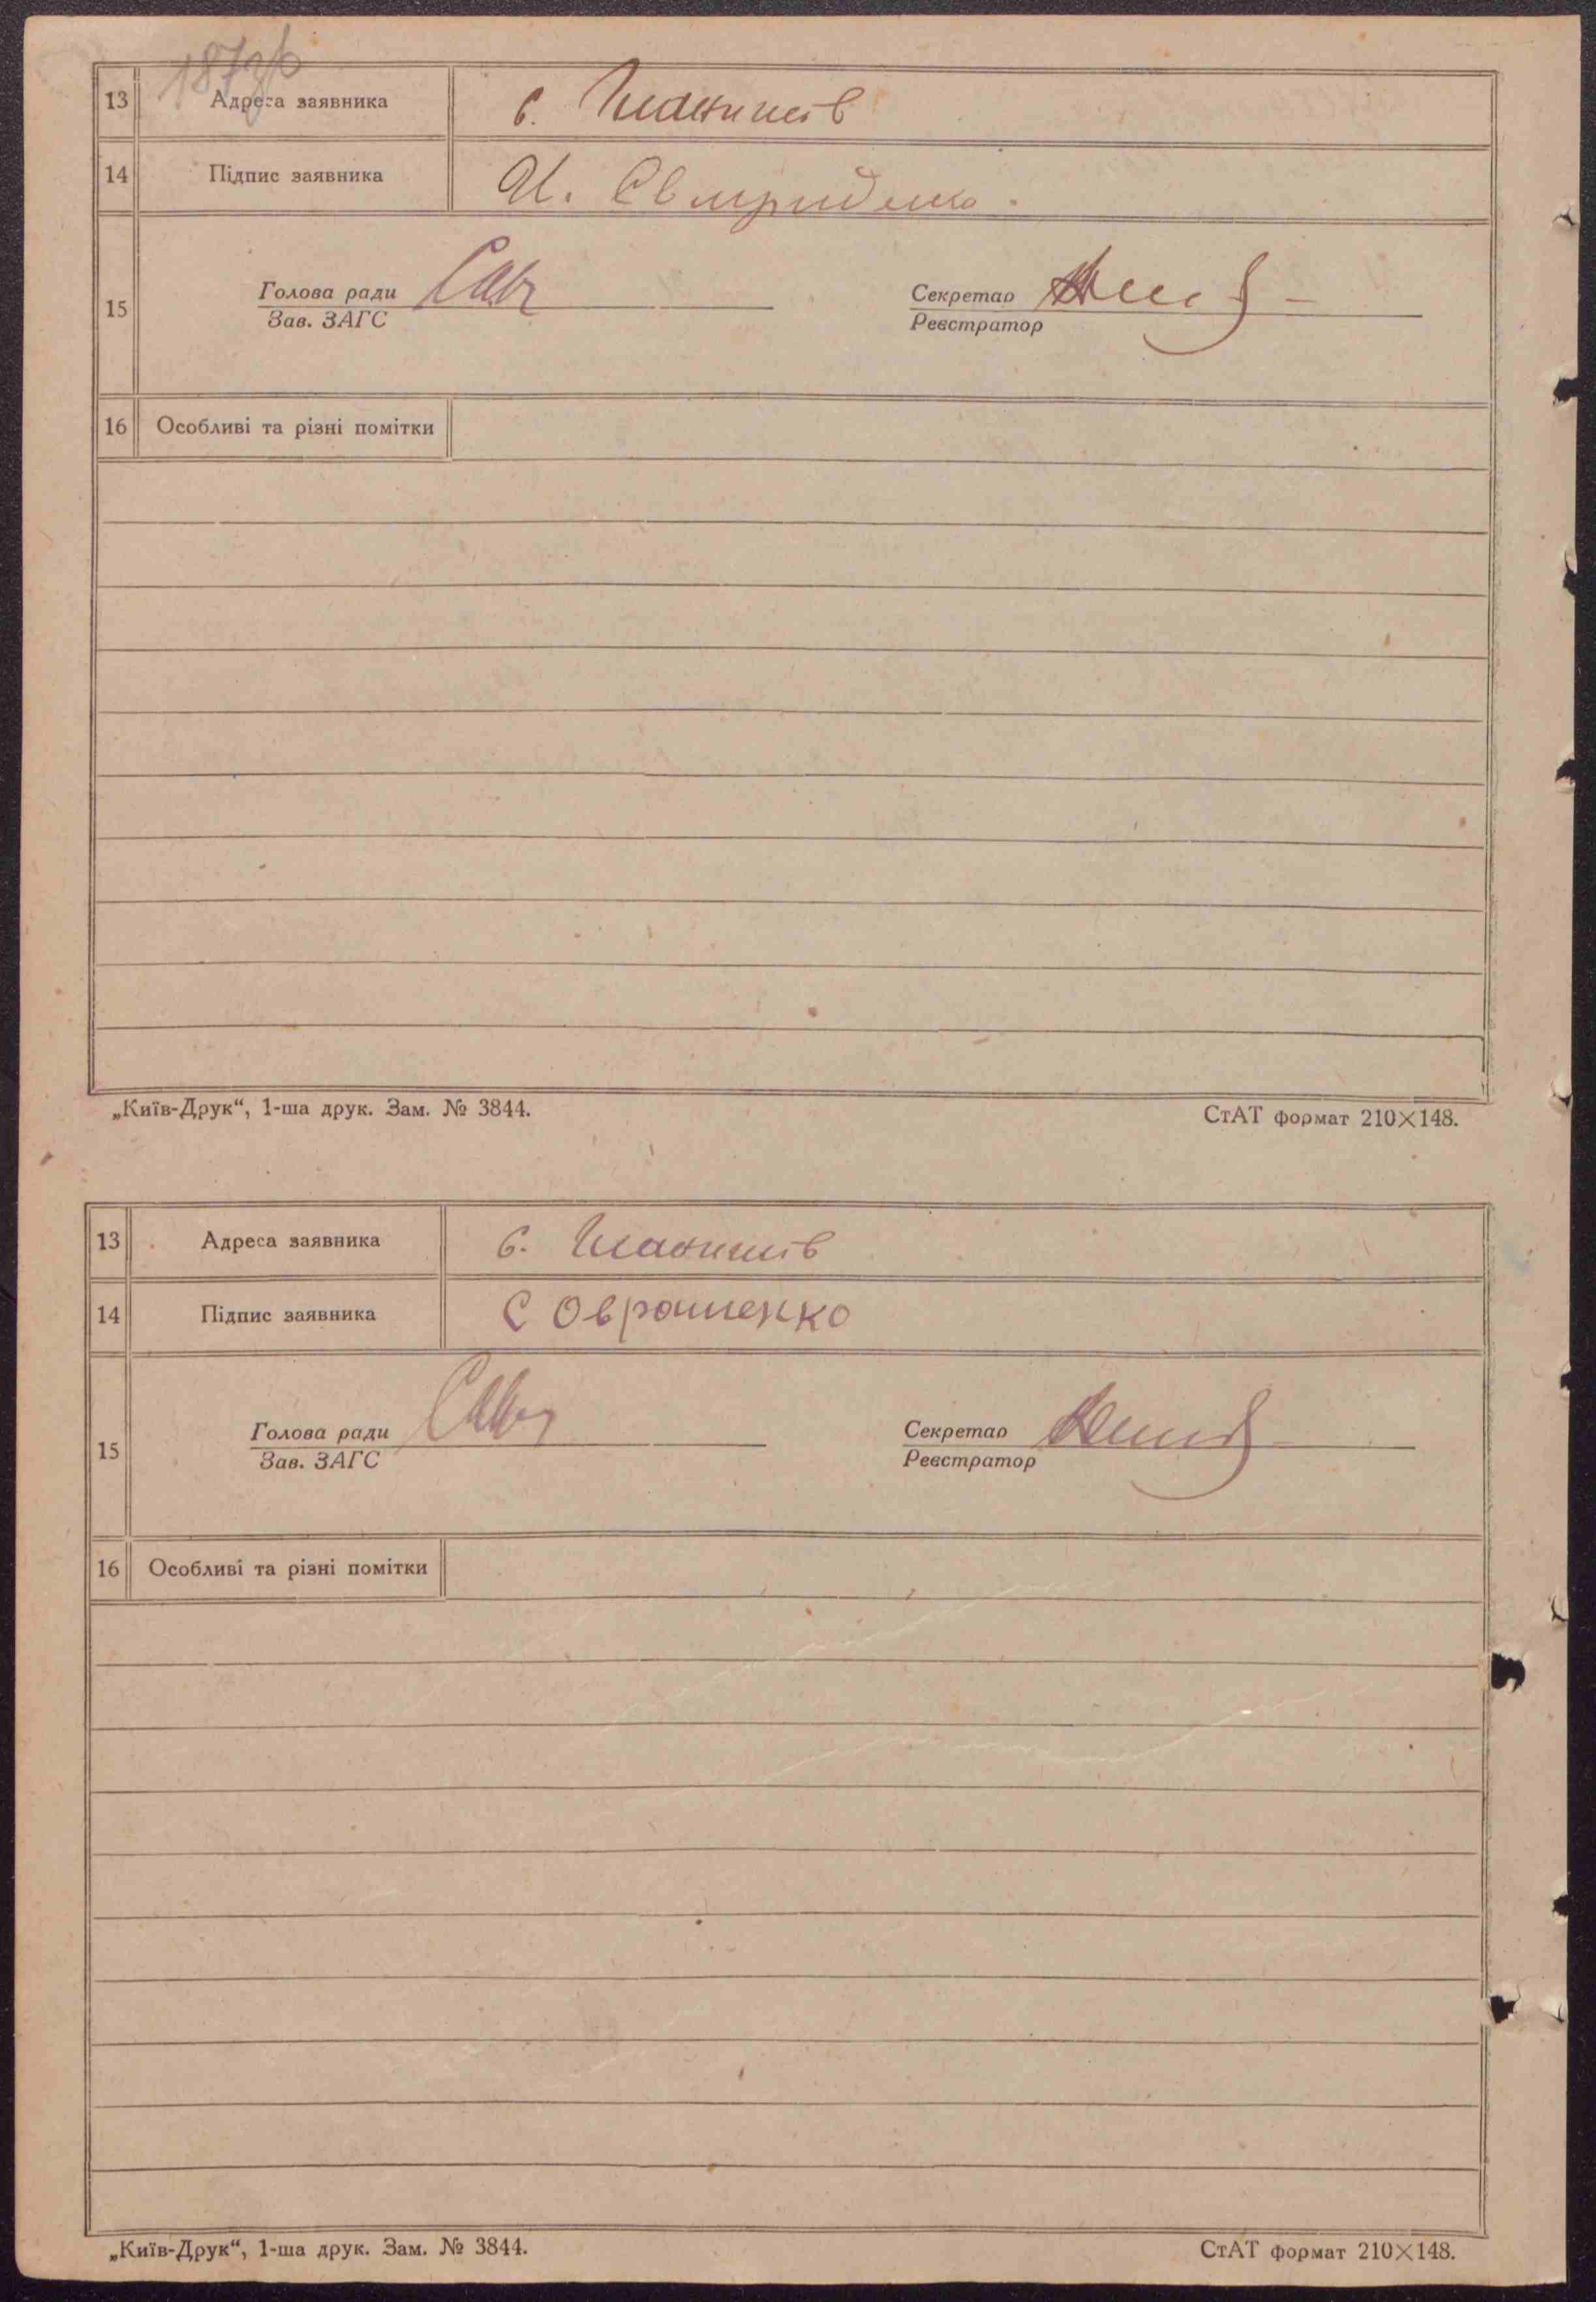 187зв
13 Адреса заявника с. Шакишів
14 Підпис заявника И. Свириденко.
15 Голова ради Секретар
Зав. ЗАГС Реєстратор
16 Особливі та різні помітки
„Київ-Друк“, 1-ша друк. Зам. № 3844. СтАТ формат 210×148.
13 Адреса заявника с.
14 Підпис заявника С Оврашенко
15 Голова ради Секретар
Зав. ЗАГС Реєстратор
16 Особливі та різні помітки
„Київ-Друк“, 1-ша друк. Зам. № 3844. СтАТ формат 210×148.